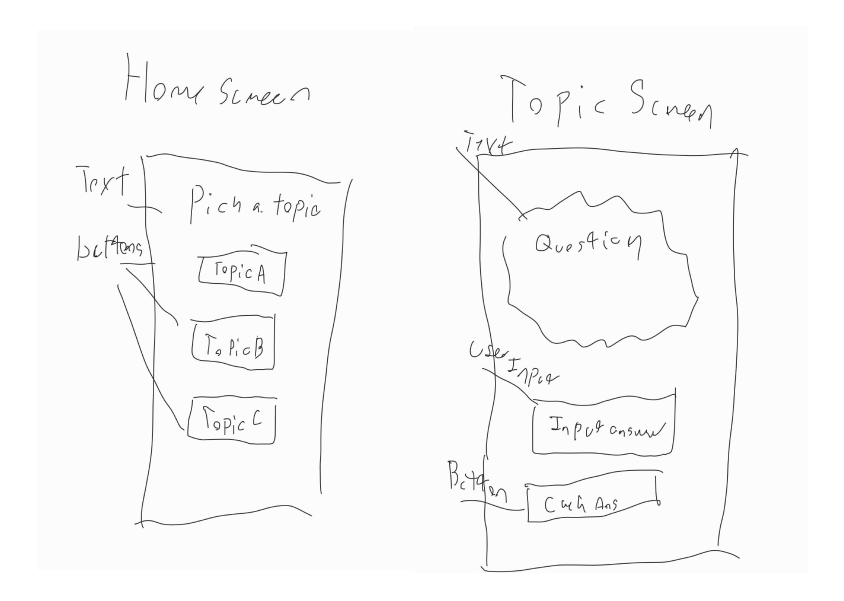 Home Screen
Text
Pick a topic
buttons
Topic A
Topic B
Topic C
Topic Screen
Text
Question
User
Input
Input answer
Button
Ans